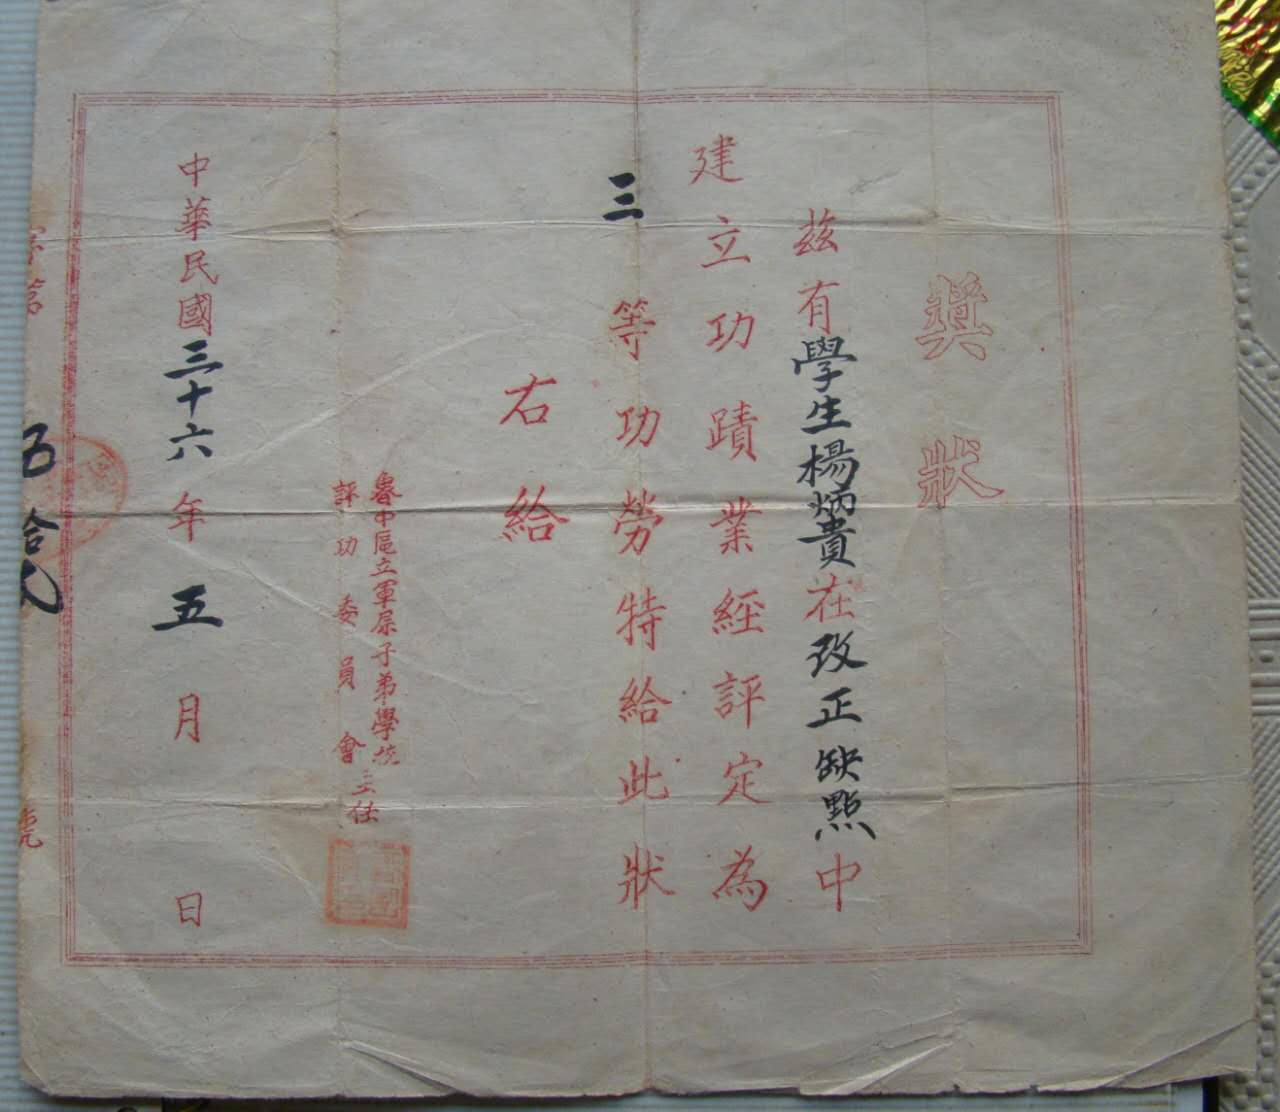 獎狀
茲有學生楊炳貴在改正缺點中
建立功蹟業經評定為
三等功勞特給此狀
右給
魯中區立軍屬子弟學校
評功委員會主任
中華民國三十六年五月日
字第伍拾弍號